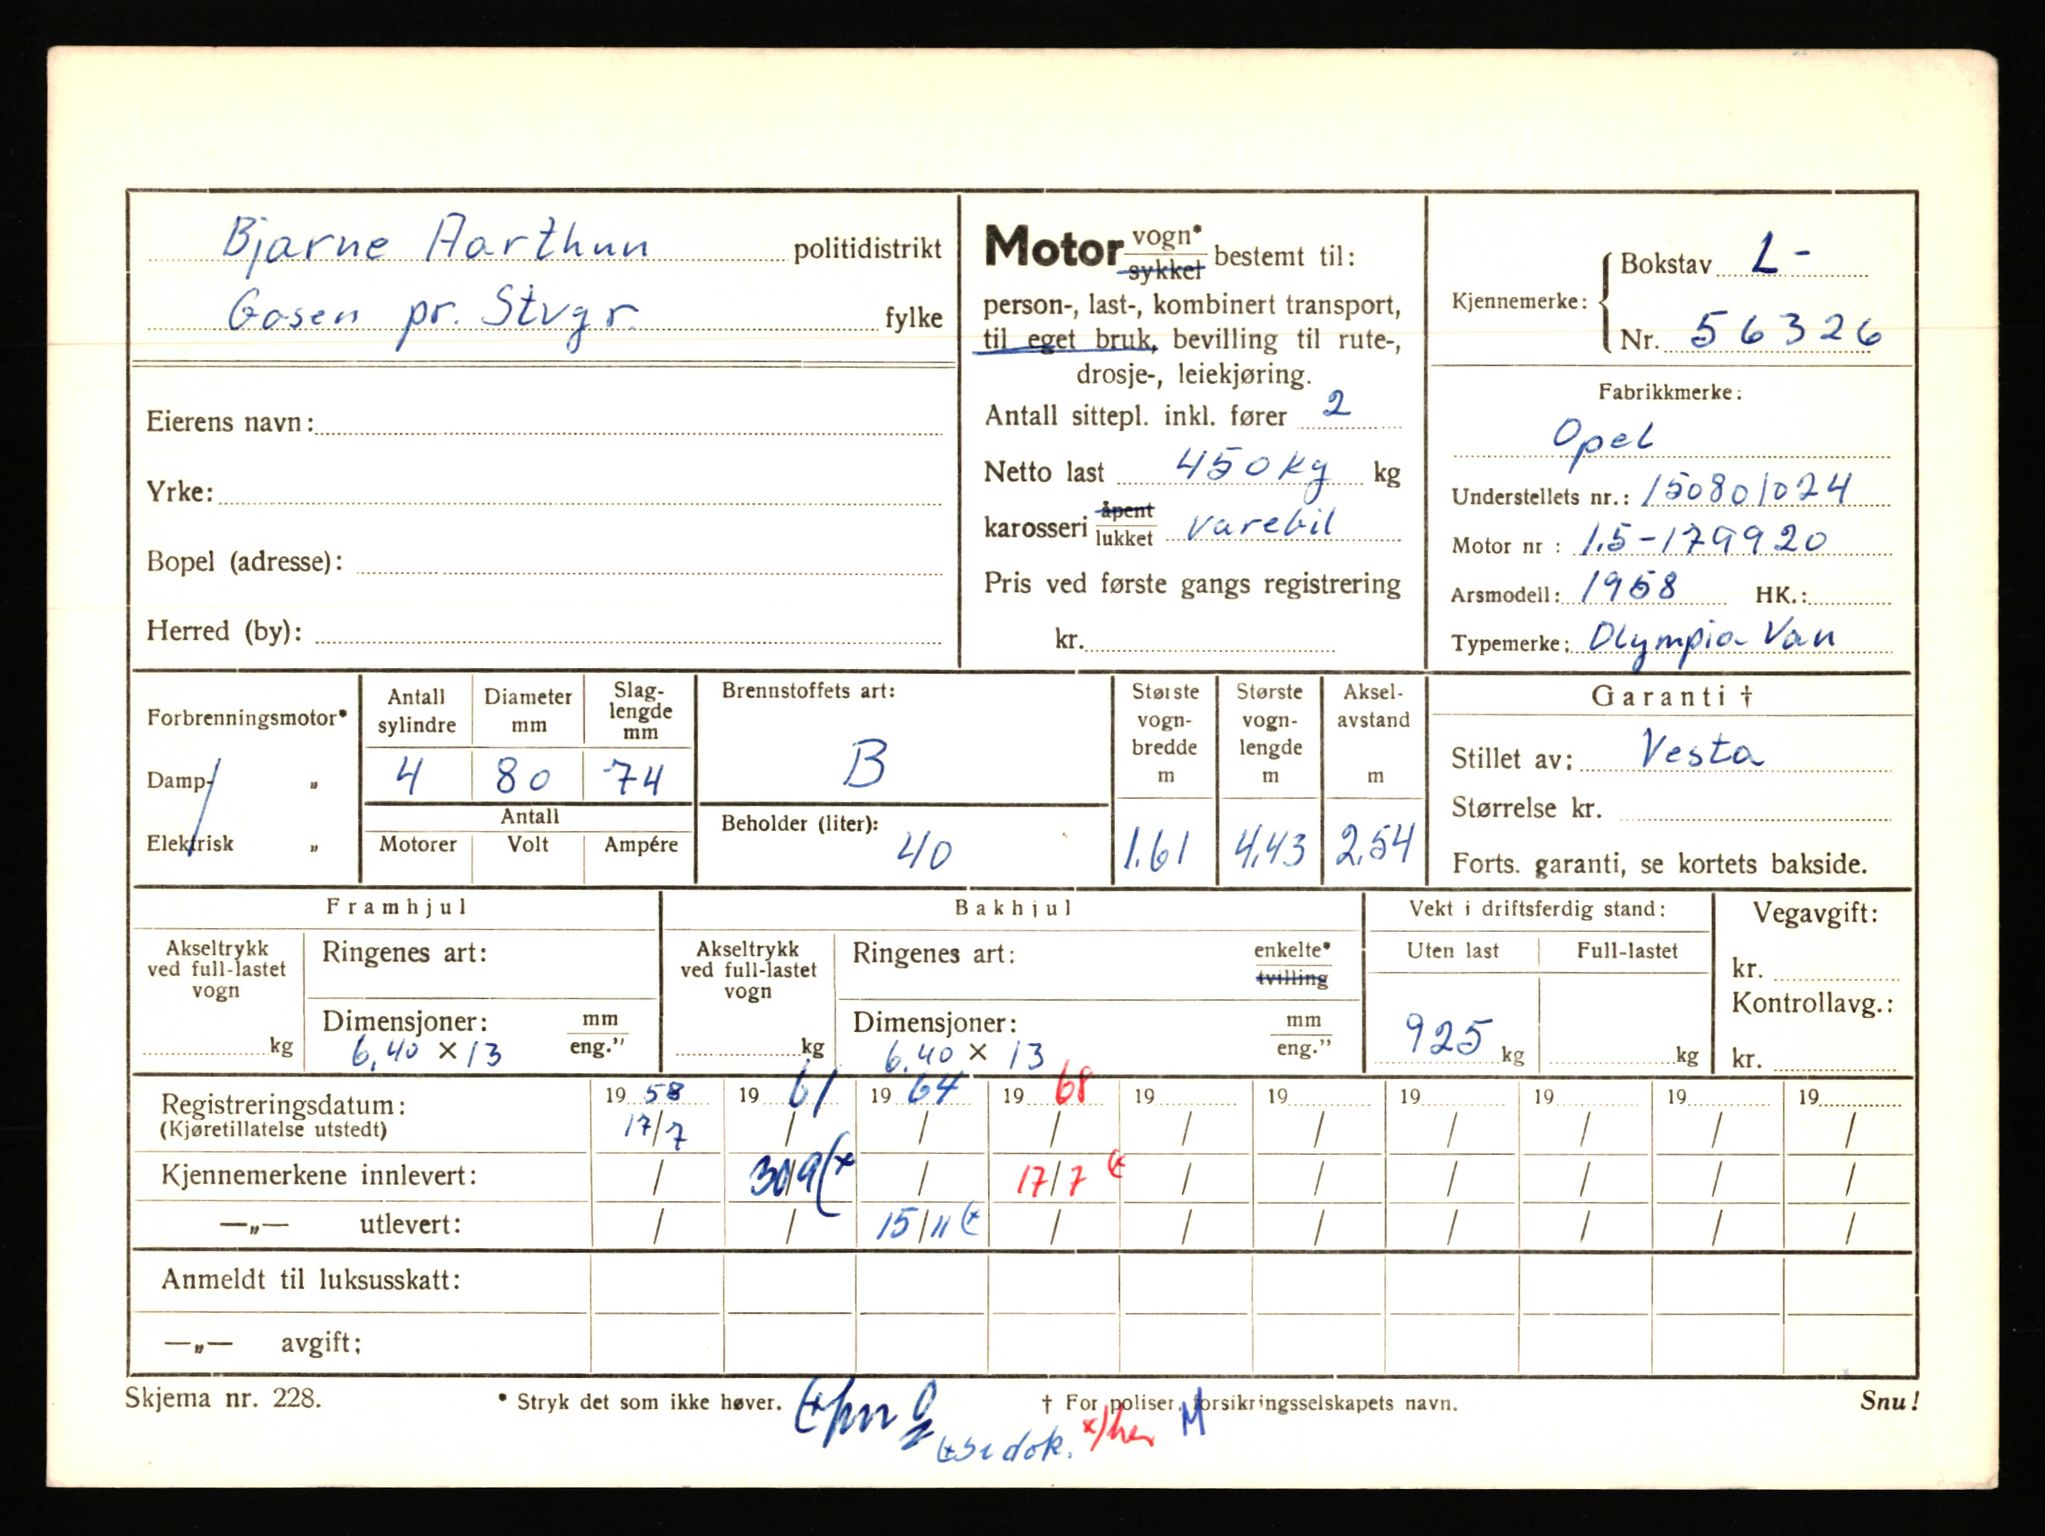 Bjarne Aarthun politidistrikt
Gosen pr. Stvgr. fylke
Eierens navn:
Yrke:
Bopel (adresse):
Herred (by):
Motor vogn* sykkel bestemt til:
person-, last-, kombinert transport,
til eget bruk, bevilling til rute-,
drosje-, leiekjøring.
Antall sittepl. inkl. fører 2
Netto last 450 kg kg
karosseri åpent lukket varebil
Pris ved første gangs registrering
kr.
Kjennemerke: Bokstav L-
Nr. 56326
Fabrikkmerke:
Opel
Understellets nr.: 150801024
Motor nr : 1.5-179920
Arsmodell: 1958 HK.:
Typemerke: Olympia Van
Forbrenningsmotor*
Damp- „
Elektrisk „
Antall sylindre Diameter mm Slag-lengde mm
4 80 74
Antall
Motorer Volt Ampére
Brennstoffets art:
B
Beholder (liter):
40
Største vogn-bredde m
1.61
Største vogn-lengde m
4.43
Aksel-avstand m
2.54
Garanti †
Stillet av: Vesta
Størrelse kr.
Forts. garanti, se kortets bakside.
Framhjul
Akseltrykk ved full-lastet vogn
kg
Ringenes art:
Dimensjoner: mm eng.”
6.40 × 13
Bakhjul
Akseltrykk ved full-lastet vogn
kg
Ringenes art: enkelte* tvilling
Dimensjoner: mm eng.”
6.40 × 13
Vekt i driftsferdig stand:
Uten last Full-lastet
925 kg kg
Vegavgift:
kr.
Kontrollavg.:
kr.
Registreringsdatum: 19 58 19 61 19 64 19 68 19 19 19 19 19 19
(Kjøretillatelse utstedt) 17/7 / / / / / / / / /
Kjennemerkene innlevert: / 30/9 (* / 17/7 (* / / / / / /
—„— utlevert: / / 15/11 (* / / / / / / /
Anmeldt til luksusskatt:
—„— avgift;
Skjema nr. 228.
* Stryk det som ikke høver.
† For poliser, forsikringsselskapets navn.
Snu!
se dok.